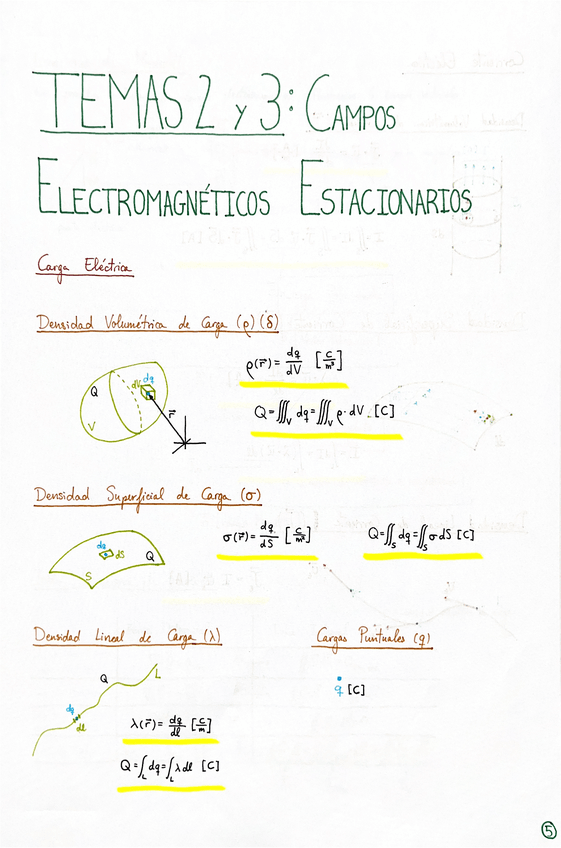 TEMAS 2 y 3: CAMPOS
ELECTROMAGNÉTICOS ESTACIONARIOS
Carga Eléctrica
Densidad Volumétrica de Carga (ρ)(δ)
Q
V
dV
dq
r⃗
ρ(r⃗) = dq/dV [C/m³]
Q = ∭_V dq = ∭_V ρ·dV [C]
Densidad Superficial de Carga (σ)
dq
dS
Q
S
σ(r⃗) = dq/dS [C/m²]
Q = ∬_S dq = ∬_S σdS [C]
Densidad Lineal de Carga (λ)
Q
L
dq
dl
λ(r⃗) = dq/dl [C/m]
Q = ∫_L dq = ∫_L λdl [C]
Cargas Puntuales (q)
q [C]
5